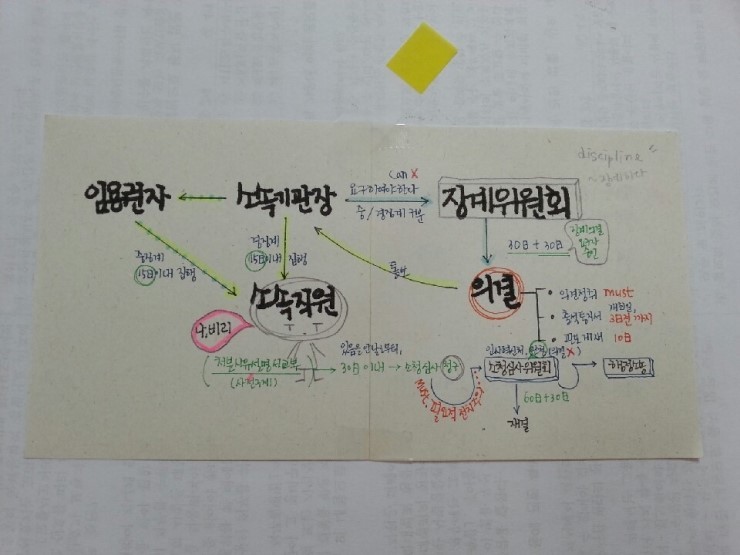 discipline
~징계하다
임용권자
소속기관장
can X
요구하여야 하다
중/경징계 구분
징계위원회
30日 + 30日
징계의결
승인
중징계
15日이내 집행
경징계
15日이내 집행
통보
소속직원
나, 비리
의결
• 의결정족 must
• 출석통지서 개최일,
3日전까지
• 관보게재 10日
처분사유설명서교부
(사전주의)
있음을 안 날로부터,
30日이내 → 소청심사청구
must, 필요적 전치주의
소청심사위원회
행정소송
60日+30日
재결